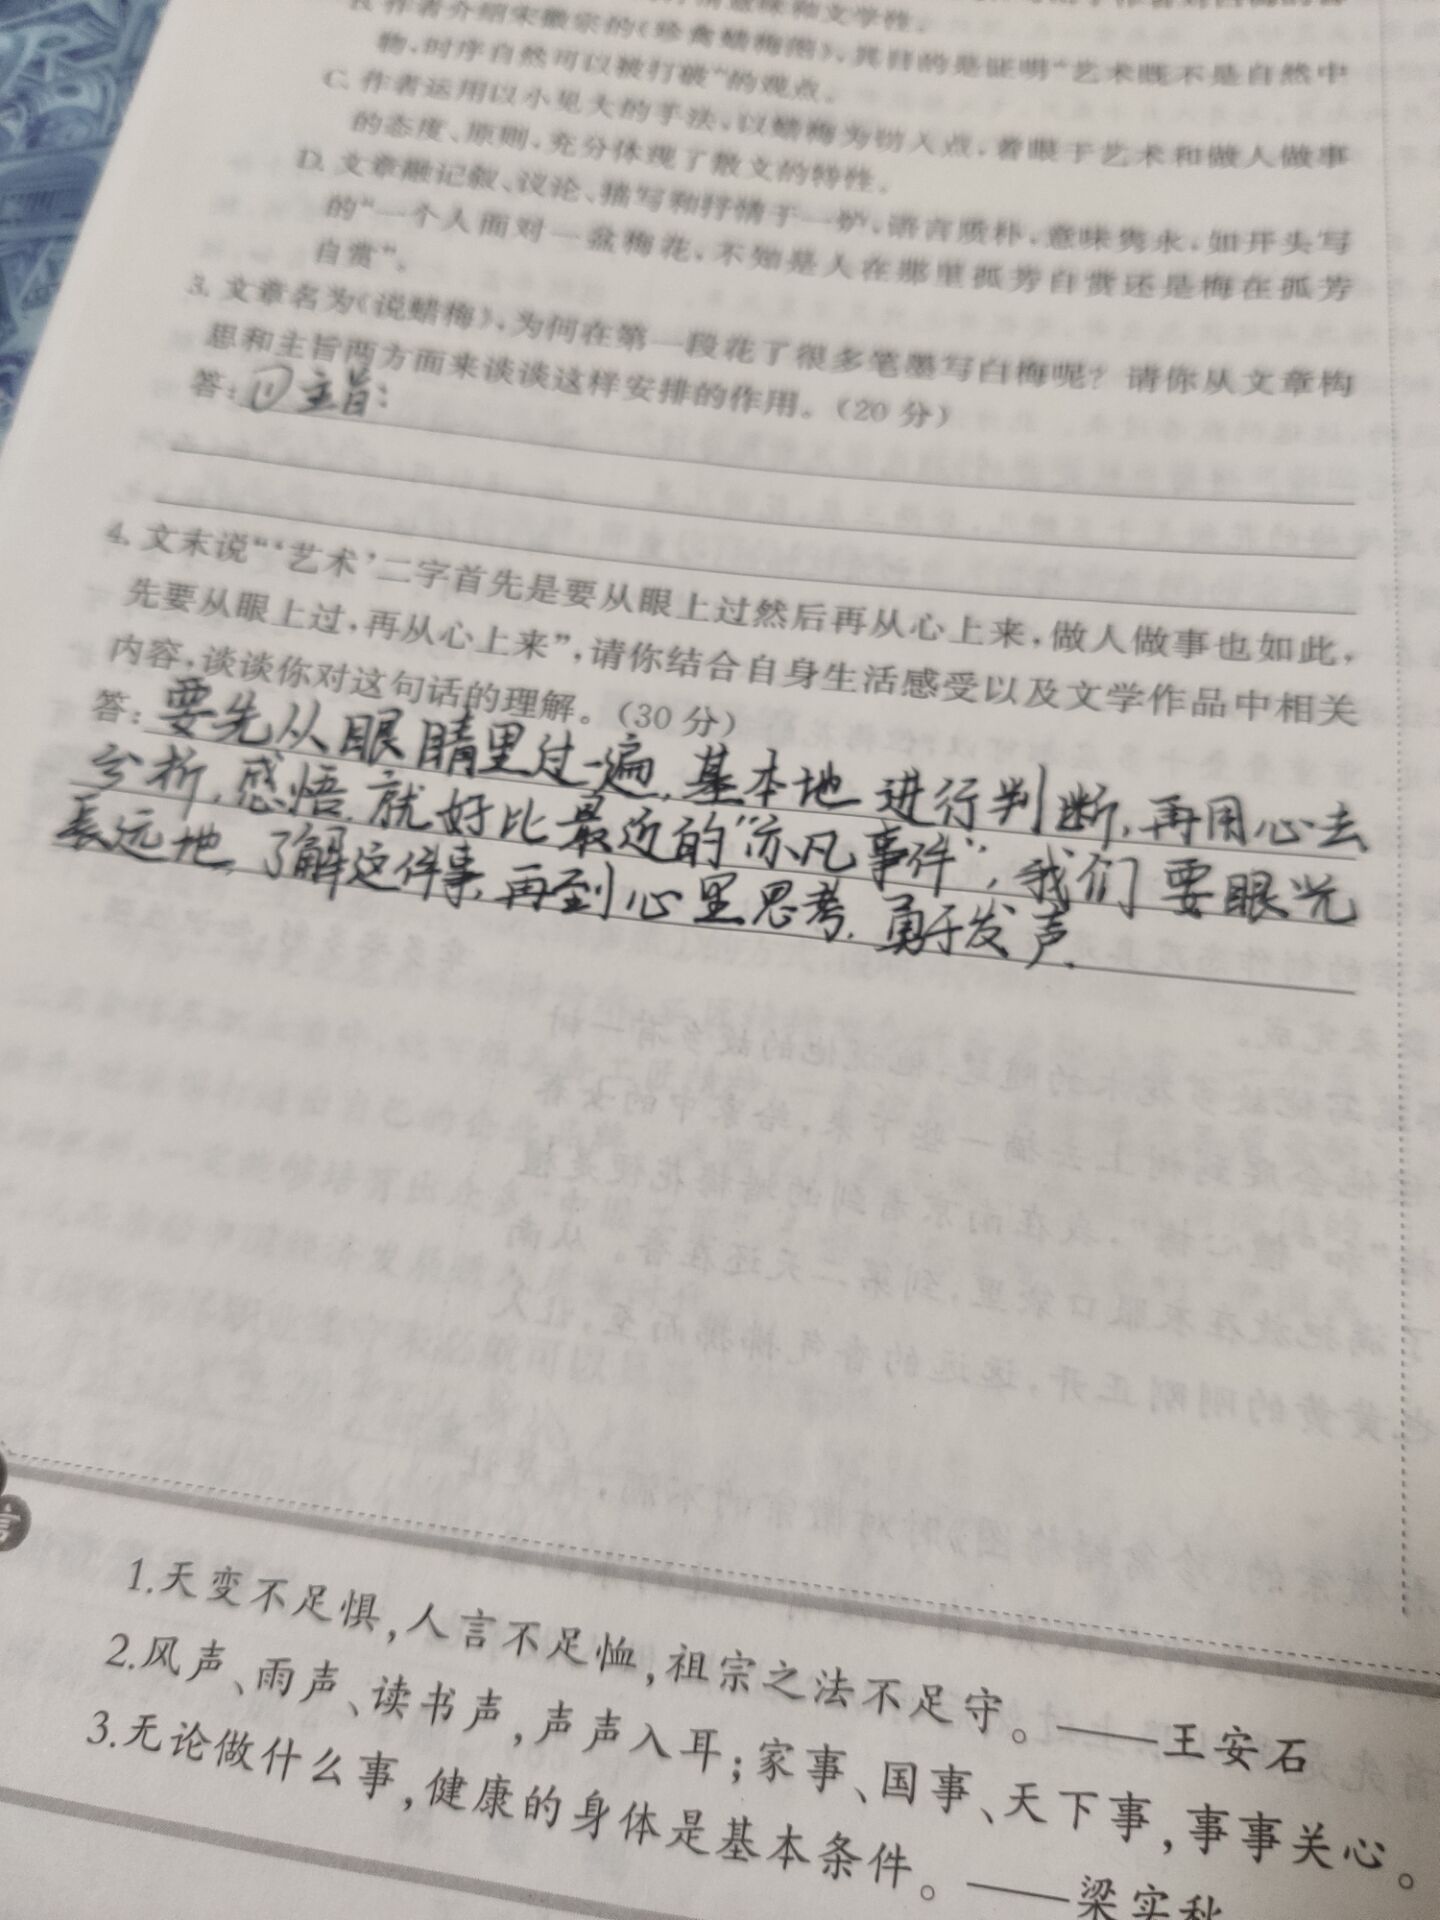 B. 作者介绍宋徽宗的《珍禽蜡梅图》，其目的是证明“艺术既不是自然中
物，时序自然可以被打破”的观点。
C. 作者运用以小见大的手法，以蜡梅为切入点，着眼于艺术和做人做事
的态度、原则，充分体现了散文的特性。
D. 文章融记叙、议论、描写和抒情于一炉，语言质朴，意味隽永，如开头写
的“一个人面对一盆梅花，不知是人在那里孤芳自赏还是梅在孤芳
自赏”。
3. 文章名为《说蜡梅》，为何在第一段花了很多笔墨写白梅呢？请你从文章构
思和主旨两方面来谈谈这样安排的作用。（20分）
答：①主旨：
4. 文末说“‘艺术’二字首先是要从眼上过然后再从心上来，做人做事也如此，
先要从眼上过，再从心上来”，请你结合自身生活感受以及文学作品中相关
内容，谈谈你对这句话的理解。（30分）
答：要先从眼睛里过一遍，基本地进行判断，再用心去
分析，感悟，就好比最近的“亦凡事件”，我们要眼光
长远地，了解这件事，再到心里思考，勇于发声.
言
1.天变不足惧，人言不足恤，祖宗之法不足守。——王安石
2.风声、雨声、读书声，声声入耳；家事、国事、天下事，事事关心。
3.无论做什么事，健康的身体是基本条件。——梁实秋